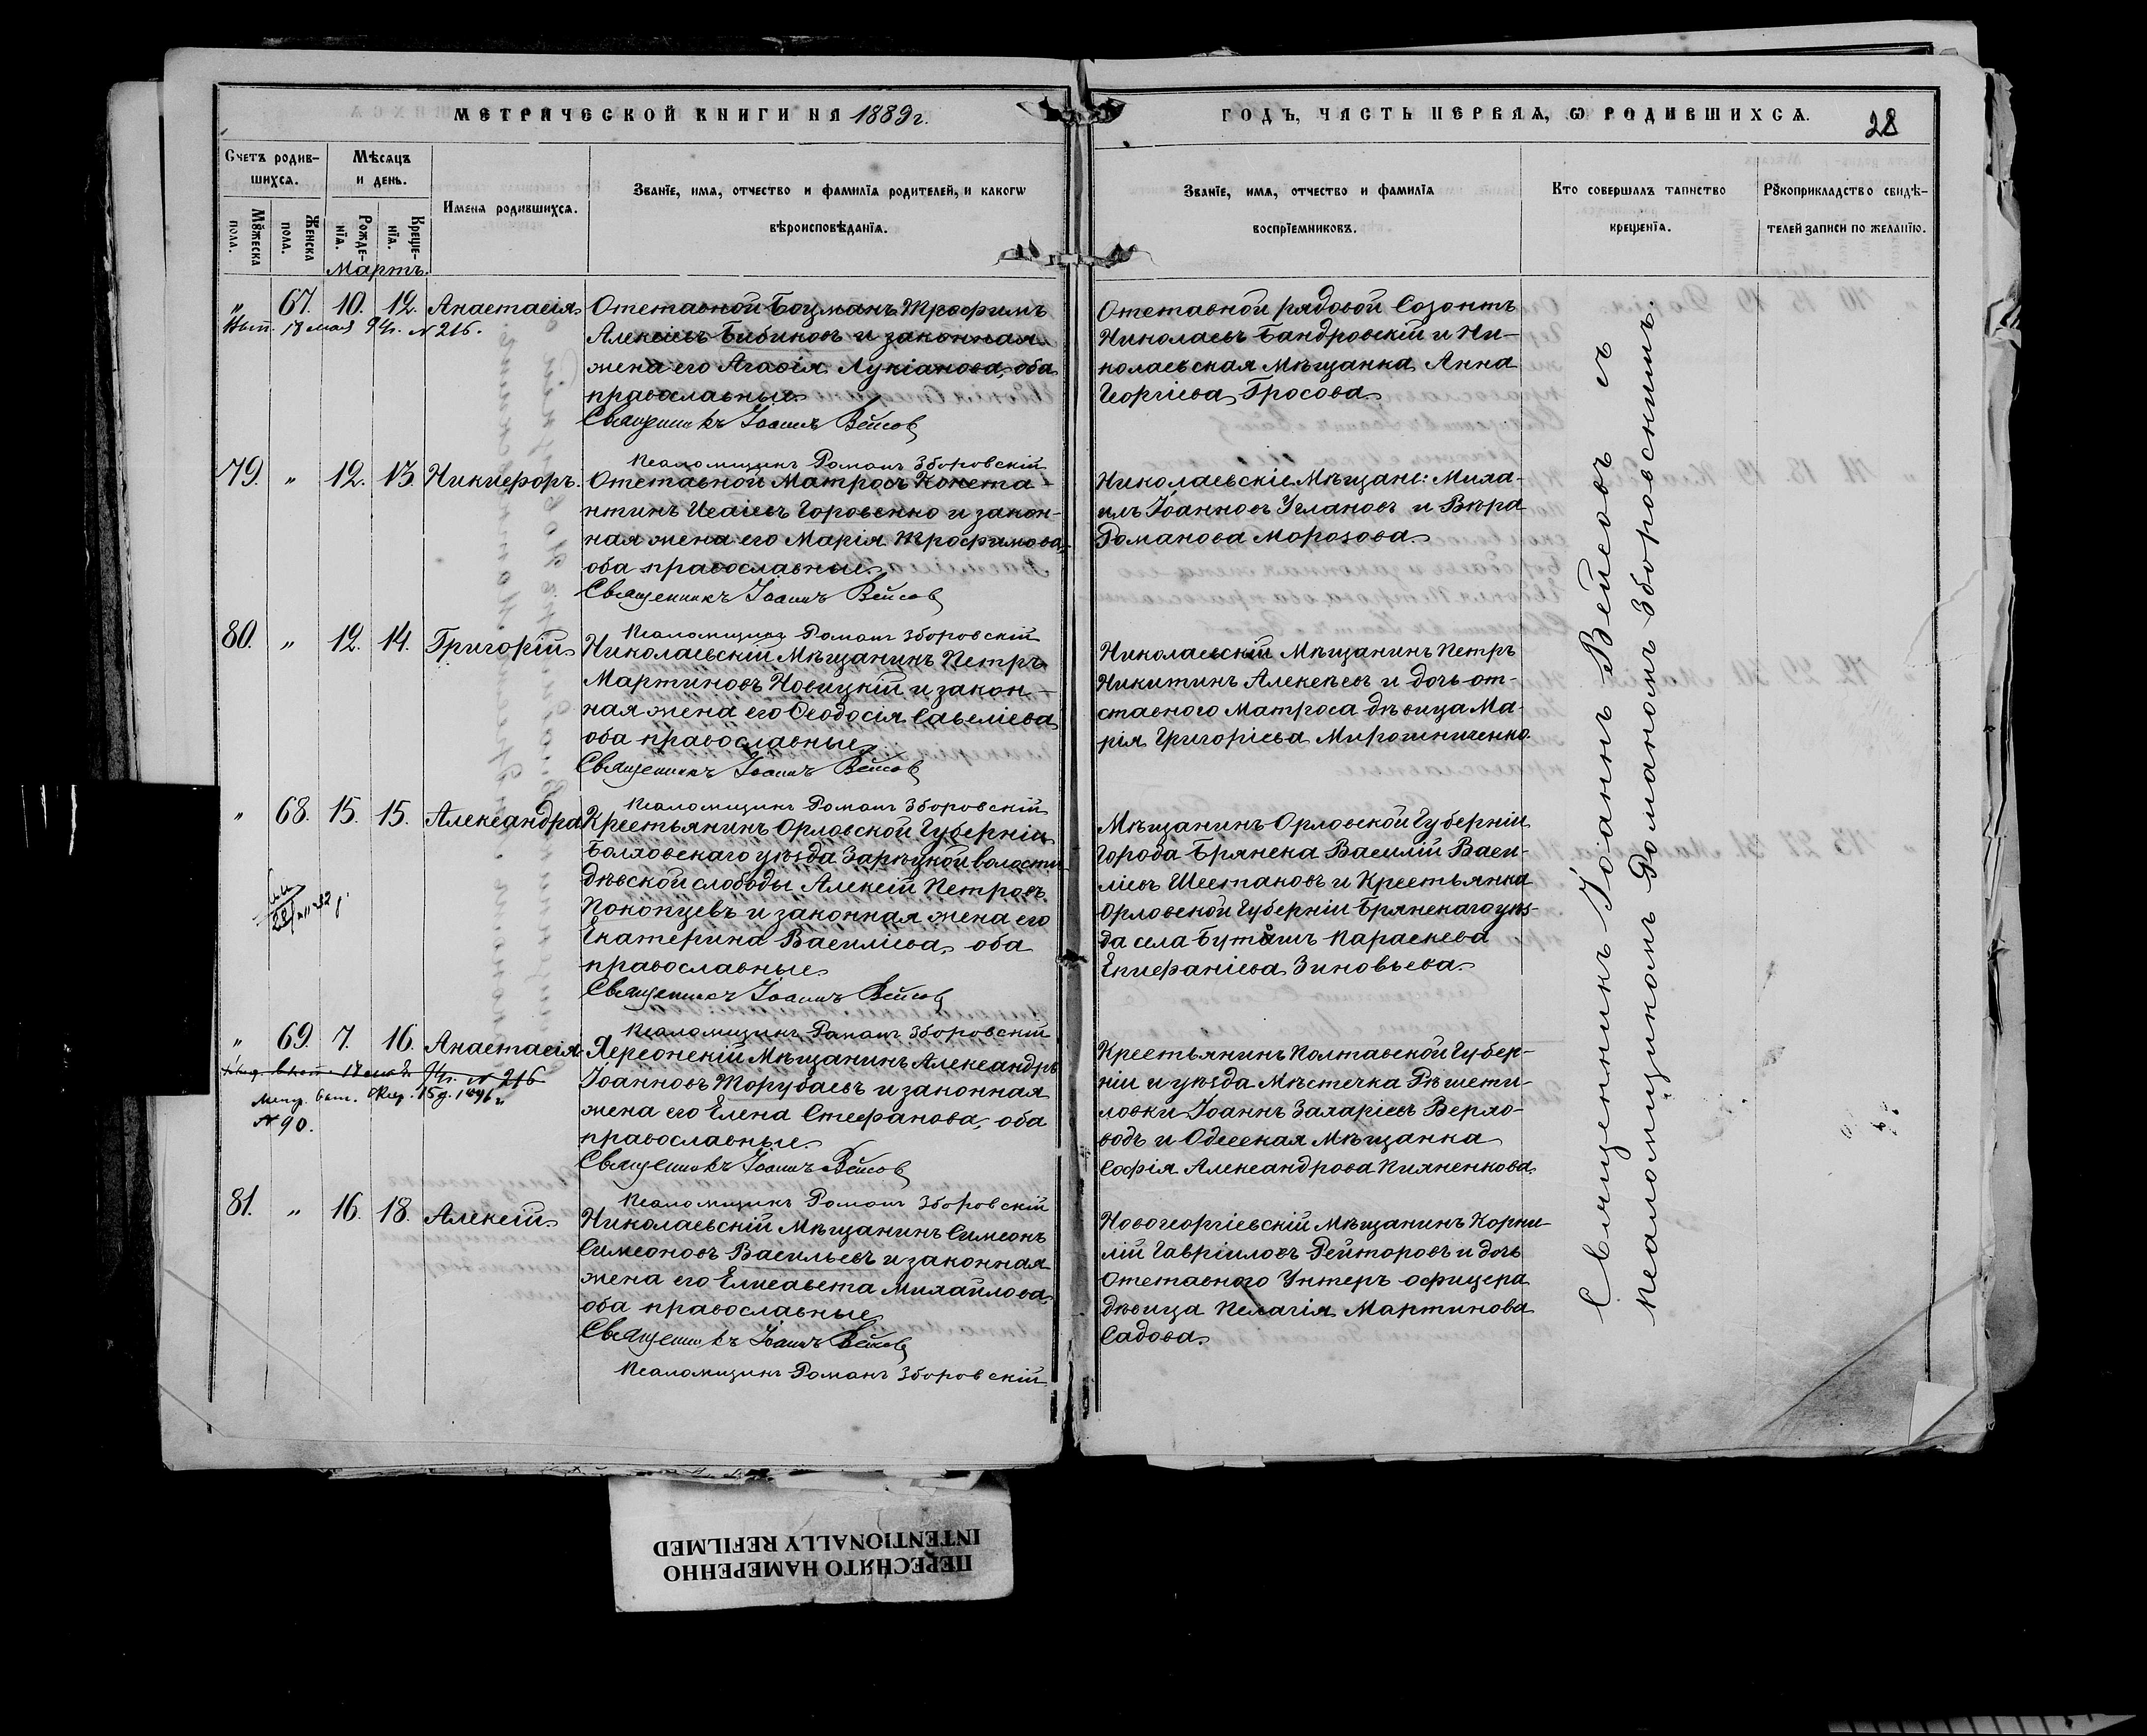 МЕТРИЧЕСКОЙ КНИГИ НА 1889 г.
ГОДЪ, ЧАСТЬ ПЕРВАЯ, Ѡ РОДИВШИХСѦ.
28
Счетъ родив-
шихсѧ.
Мѣсѧцъ
и день.
Имена родившихсѧ.
Званїе, имѧ, отчество и фамилїѧ родителей, и какогѡ
вѣроисповѣданїѧ.
Званїе, имѧ, отчество и фамилїѧ
воспрїемниковъ.
Кто совершалъ таинство
крещенїѧ.
Рꙋкоприкладство свидѣ-
телей записи по желанїю.
Мꙋжеска
пола.
Женска
пола.
Рожде-
нїѧ.
Креще-
нїѧ.
Мартъ.
„ 67. 10. 12. Анастасія
18 мая 9 № 216.
Отставной Боцманъ Трофимъ
Алексіевъ Бибиковъ и законная
жена его Агафія Лукіанова, оба
православные
Священникъ Іоаннъ Вейсов
Псаломщикъ Романъ Зборовскій
Отставной рядовой Созонтъ
Николаевъ Бандровскій и Ни-
колаевская Мѣщанка Анна
Георгіева Гросова
79. „ 12. 13. Никифоръ.
Отставной Матросъ Конста-
нтинъ Исаіевъ Горовенко и закон-
ная жена его Марія Трофимова,
оба православные
Священникъ Іоаннъ Вейсов
Псаломщикъ Романъ Зборовскій
Николаевскіе Мѣщане: Миха-
илъ Іоанновъ Углановъ и Вѣра
Романова Морозова
80. „ 12. 14. Григорій
Николаевскій Мѣщанинъ Петръ
Мартиновъ Новицкій и закон-
ная жена его Ѳеодосія Савеліева
оба православные
Священникъ Іоаннъ Вейсов
Псаломщикъ Романъ Зборовскій
Николаевскій Мѣщанинъ Петръ
Никитинъ Алексѣевъ и дочь от-
ставного Матроса дѣвица Ма-
рія Григоріева Мирошниченко.
„ 68. 15. 15. Александра
Крестьянинъ Орловской Губерніи
Болховскаго уѣзда Зарѣцкой волости
Дѣвской слободы Алексій Петровъ
Поконцевъ и законная жена его
Екатерина Василіева, оба
православные
Священникъ Іоаннъ Вейсов
Псаломщикъ Романъ Зборовскій
Мѣщанинъ Орловской Губерніи
города Брянска Василій Васи-
ліевъ Шестаковъ и Крестьянка
Орловской Губерніи Брянскаго уѣз-
да села Параскева
Епифаніева Зиновьева
„ 69. 7. 16. Анастасія
№ 216
№ 90.
Херсонскій Мѣщанинъ Александръ
Іоанновъ Торубаевъ и законная
жена его Елена Стефанова, оба
православные
Священникъ Іоаннъ Вейсов
Псаломщикъ Романъ Зборовскій
Крестьянинъ Полтавской Губер-
ніи и уѣзда Мѣстечка Рѣшети-
ловки Іоаннъ Захаріевъ Верхо-
водъ и Одесская Мѣщанка
Софія Александрова Кияненкова
81. „ 16. 18. Алексій
Николаевскій Мѣщанинъ Симеонъ
Симеоновъ Васильевъ и законная
жена его Елисавета Михайлова,
оба православные
Священникъ Іоаннъ Вейсов
Псаломщикъ Романъ Зборовскій
Новогеоргіевскій Мѣщанинъ Корни-
лій Гавріиловъ Рейторовъ и дочь
Отставного Унтеръ офицера
дѣвица Пелагія Мартинова
Садова
Священникъ Іоаннъ Вейсовъ съ
псаломщикомъ Романомъ Зборовскимъ.
ПЕРЕСНЯТО НАМЕРЕННО
INTENTIONALLY REFILMED